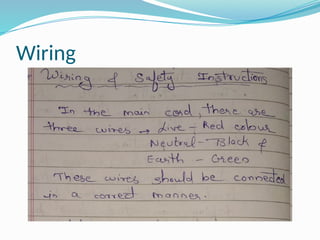 Wiring
Wiring & Safety Instructions
In the main cord, there are
three wires → Live - Red colour
Neutral - Black &
Earth - Green
These wires should be connected
in a correct manner.